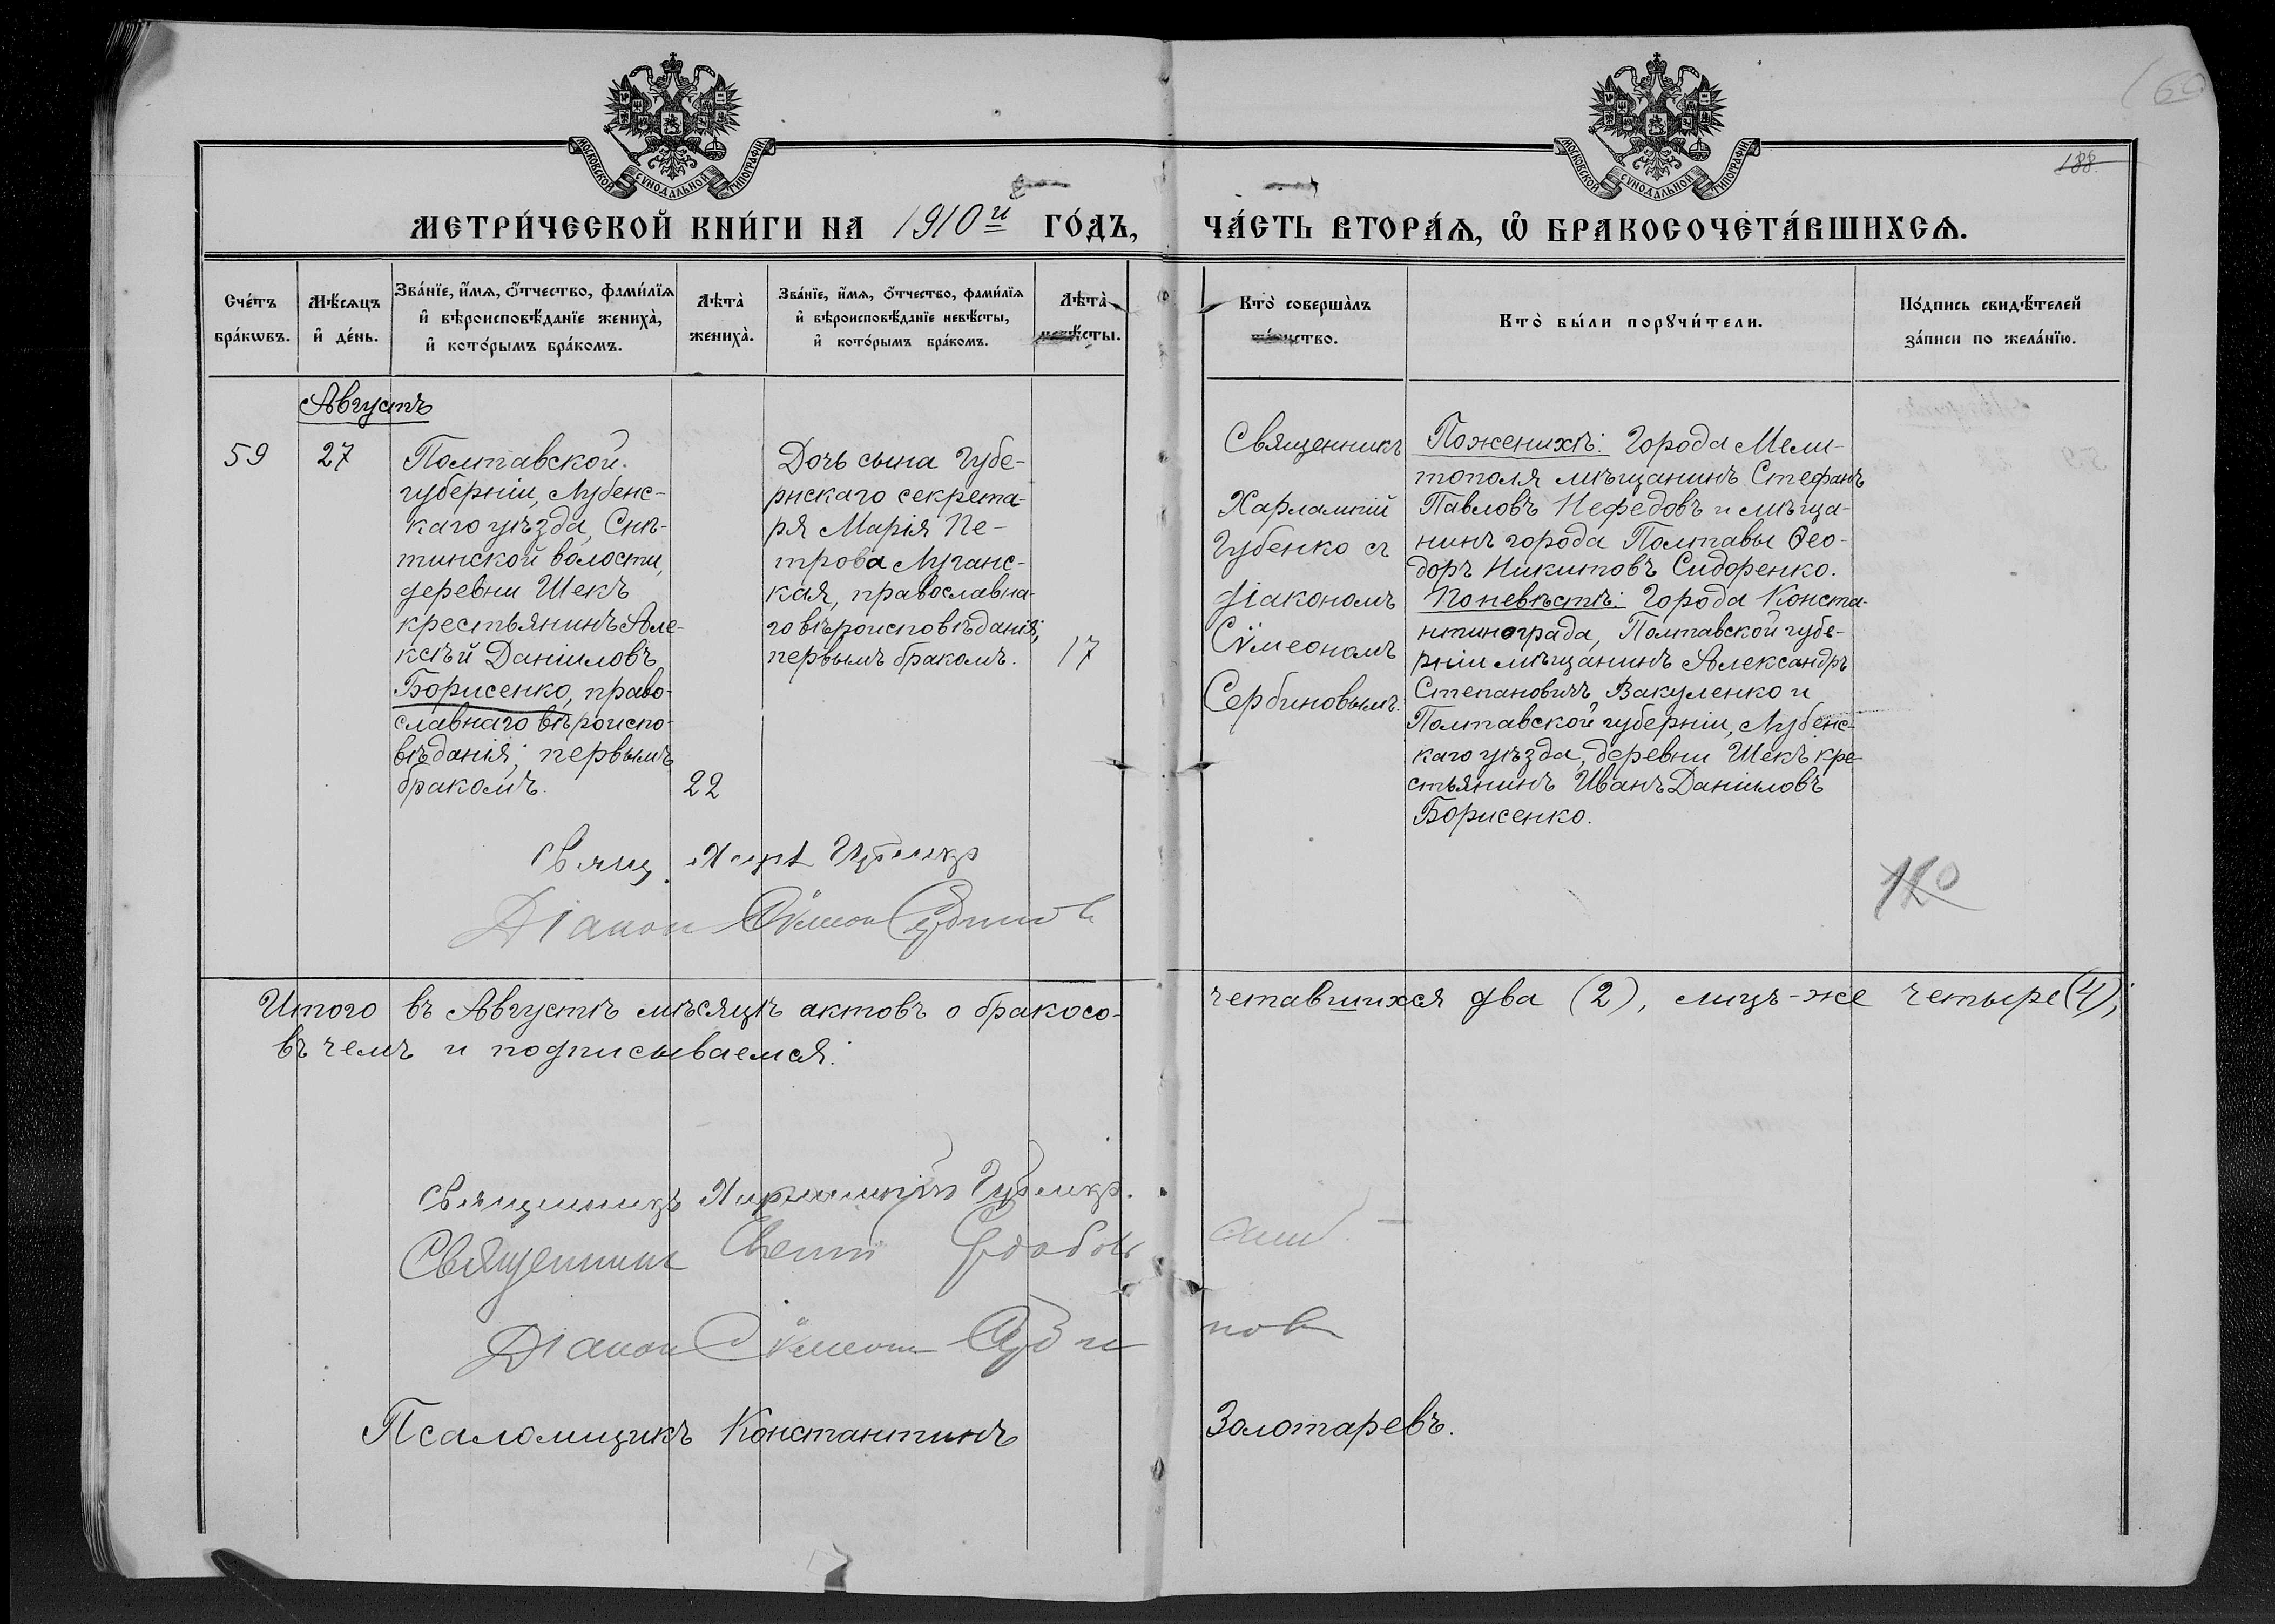 МОСКОВСКОЙ СѴНОДАЛЬНОЙ ТИПОГРАФІИ
МОСКОВСКОЙ СѴНОДАЛЬНОЙ ТИПОГРАФІИ
188.
МЕТРИ́ЧЕСКОЙ КНИ́ГИ НА 1910й ГО́ДЪ,
ЧА́СТЬ ВТОРА́Ѧ, Ѽ БРАКОСОЧЕТА́ВШИХСѦ.
Сче́тъ бра́кѡвъ.
Мѣ́сѧцъ и҆ де́нь.
Зва́нїе, и҆́мѧ, ѻ҆́тчество, фами́лїѧ и҆ вѣроисповѣ́данїе жениха̀, и҆ кото́рымъ бра́комъ.
Лѣта̀ жениха̀.
Зва́нїе, и҆́мѧ, ѻ҆́тчество, фами́лїѧ и҆ вѣроисповѣ́данїе невѣ́сты, и҆ кото́рымъ бра́комъ.
Лѣта̀ невѣ́сты.
Кто̀ соверша̀лъ та́инство.
Кто̀ бы́ли порꙋчи́тели.
По́дпись свидѣ́телей за́писи по жела́нїю.
Августъ
59
27
Полтавской
губерніи, Лубенс-
каго уѣзда, Снѣ-
тинской волости,
деревни Шекъ
крестьянинъ Але-
ксѣй Даніиловъ
Борисенко, право-
славнаго вѣроиспо-
вѣданія; первымъ
бракомъ.
22
Дочь сына Губе-
рнскаго секрета-
ря Марія Пе-
трова Луганс-
кая, православна-
го вѣроисповѣданія,
первымъ бракомъ.
17
Священникъ
Харлампій
Губенко съ
діакономъ
Сѵмеономъ
Сербиновымъ.
По женихѣ: Города Мели-
тополя мѣщанинъ Стефанъ
Павловъ Нефедовъ и мѣща-
нинъ города Полтавы Ѳео-
доръ Никитовъ Сидоренко.
По невѣстѣ: Города Конста-
нтинограда, Полтавской губе-
рніи мѣщанинъ Александръ
Степановичъ Вакуленко и
Полтавской губерніи, Лубенс-
каго уѣзда, деревни Шекъ кре-
стьянинъ Иванъ Даніиловъ
Борисенко.
Свящ. Харл Губенко
Діакон Сѵмеон Сербинов
Итого въ Августѣ мѣсяцѣ актовъ о бракосо-
четавшихся два (2), лицъ-же четыре (4);
въ чемъ и подписываемся:
Священникъ Харлампій Губенко.
Священник
Діакон Сѵмеон Сербинов
Псаломщикъ Константинъ Золотаревъ.